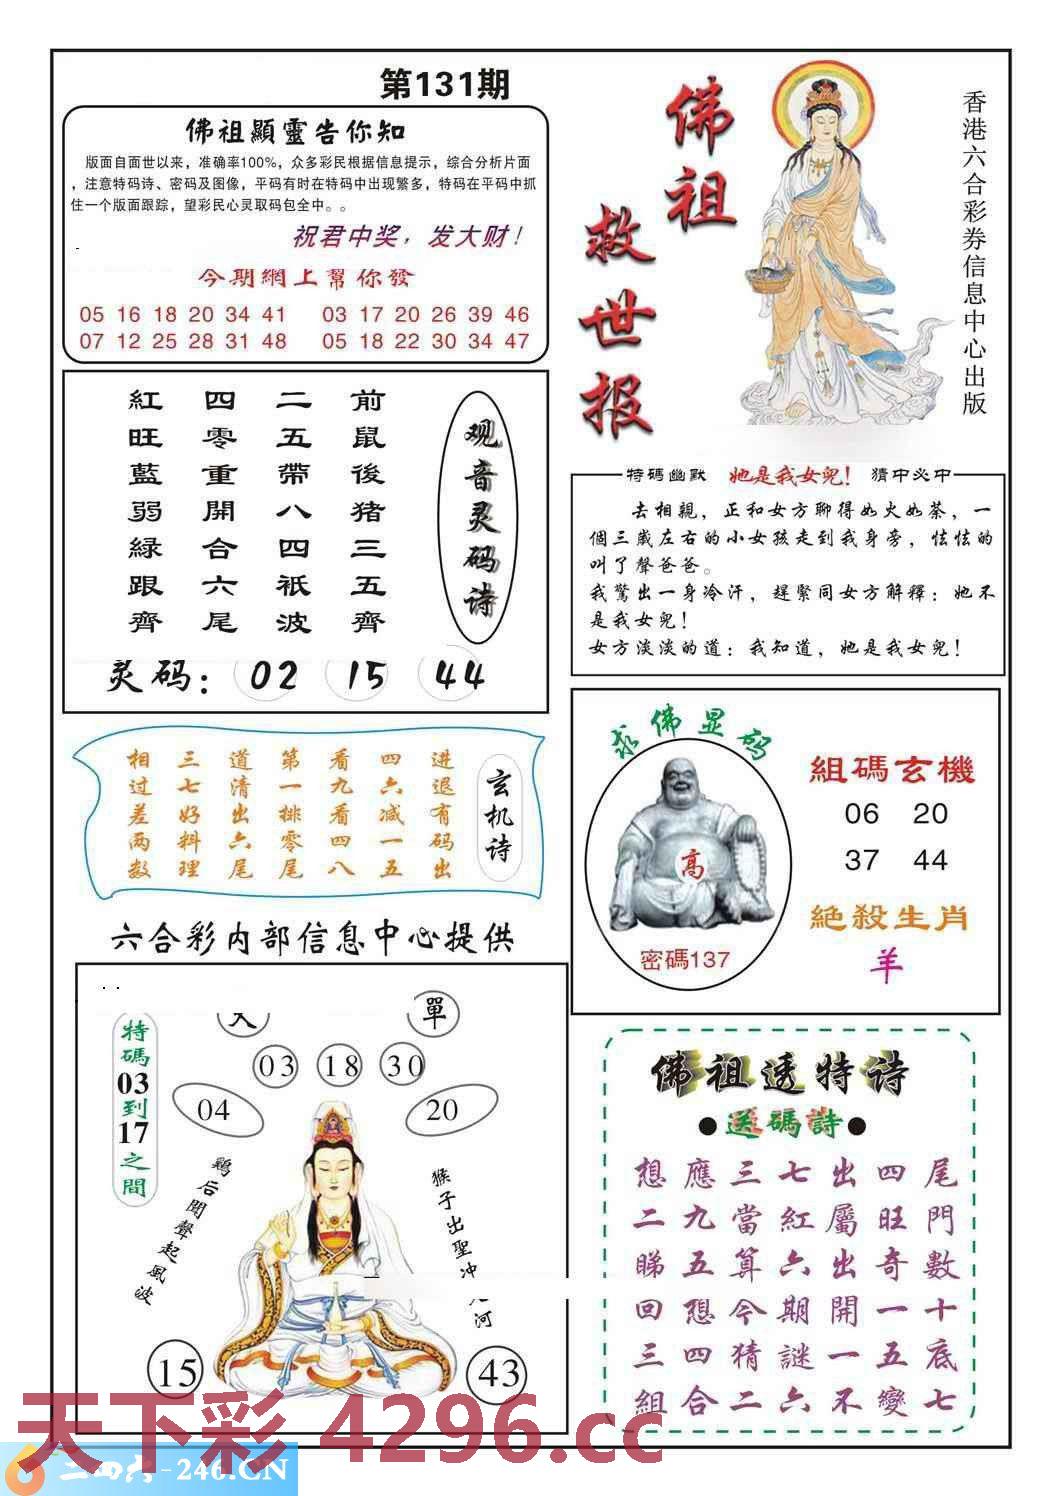 第131期
佛祖顯靈告你知
版面自面世以来，准确率100%，众多彩民根据信息提示，综合分析片面
，注意特码诗、密码及图像，平码有时在特码中出现繁多，特码在平码中抓
住一个版面跟踪，望彩民心灵取码包全中。。
祝君中奖，发大财！
今期網上幫你發
05 16 18 20 34 41 03 17 20 26 39 46
07 12 25 28 31 48 05 18 22 30 34 47
佛祖
救世报
香港六合彩券信息中心出版
观音灵码诗
前鼠後猪三五齊
二五帶八四衹波
四零重開合六尾
紅旺藍弱緑跟齊
灵码：02 15 44
特碼幽默 她是我女兒！ 猜中必中
去相親，正和女方聊得如火如荼，一
個三歲左右的小女孩走到我身旁，怯怯的
叫了聲爸爸。
我驚出一身冷汗，趕緊同女方解釋：她不
是我女兒！
女方淡淡的道：我知道，她是我女兒！
玄机诗
进退有码出
四六减一五
看九看四八
第一排零尾
道清出六尾
三七好料理
相过差两数
求佛显码
高
密碼137
組碼玄機
06 20
37 44
絶殺生肖
羊
六合彩内部信息中心提供
單
03 18 30
04 20
特碼03到17之間
鷄后聞聲起風波
猴子出聖冲 河
15 43
佛祖透特诗
●送碼詩●
想應三七出四尾
二九當紅屬旺門
睇五算六出奇數
回想今期開一十
三四猜謎一五底
組合二六不變七
天下彩 4296.cc
二四六-246.CN